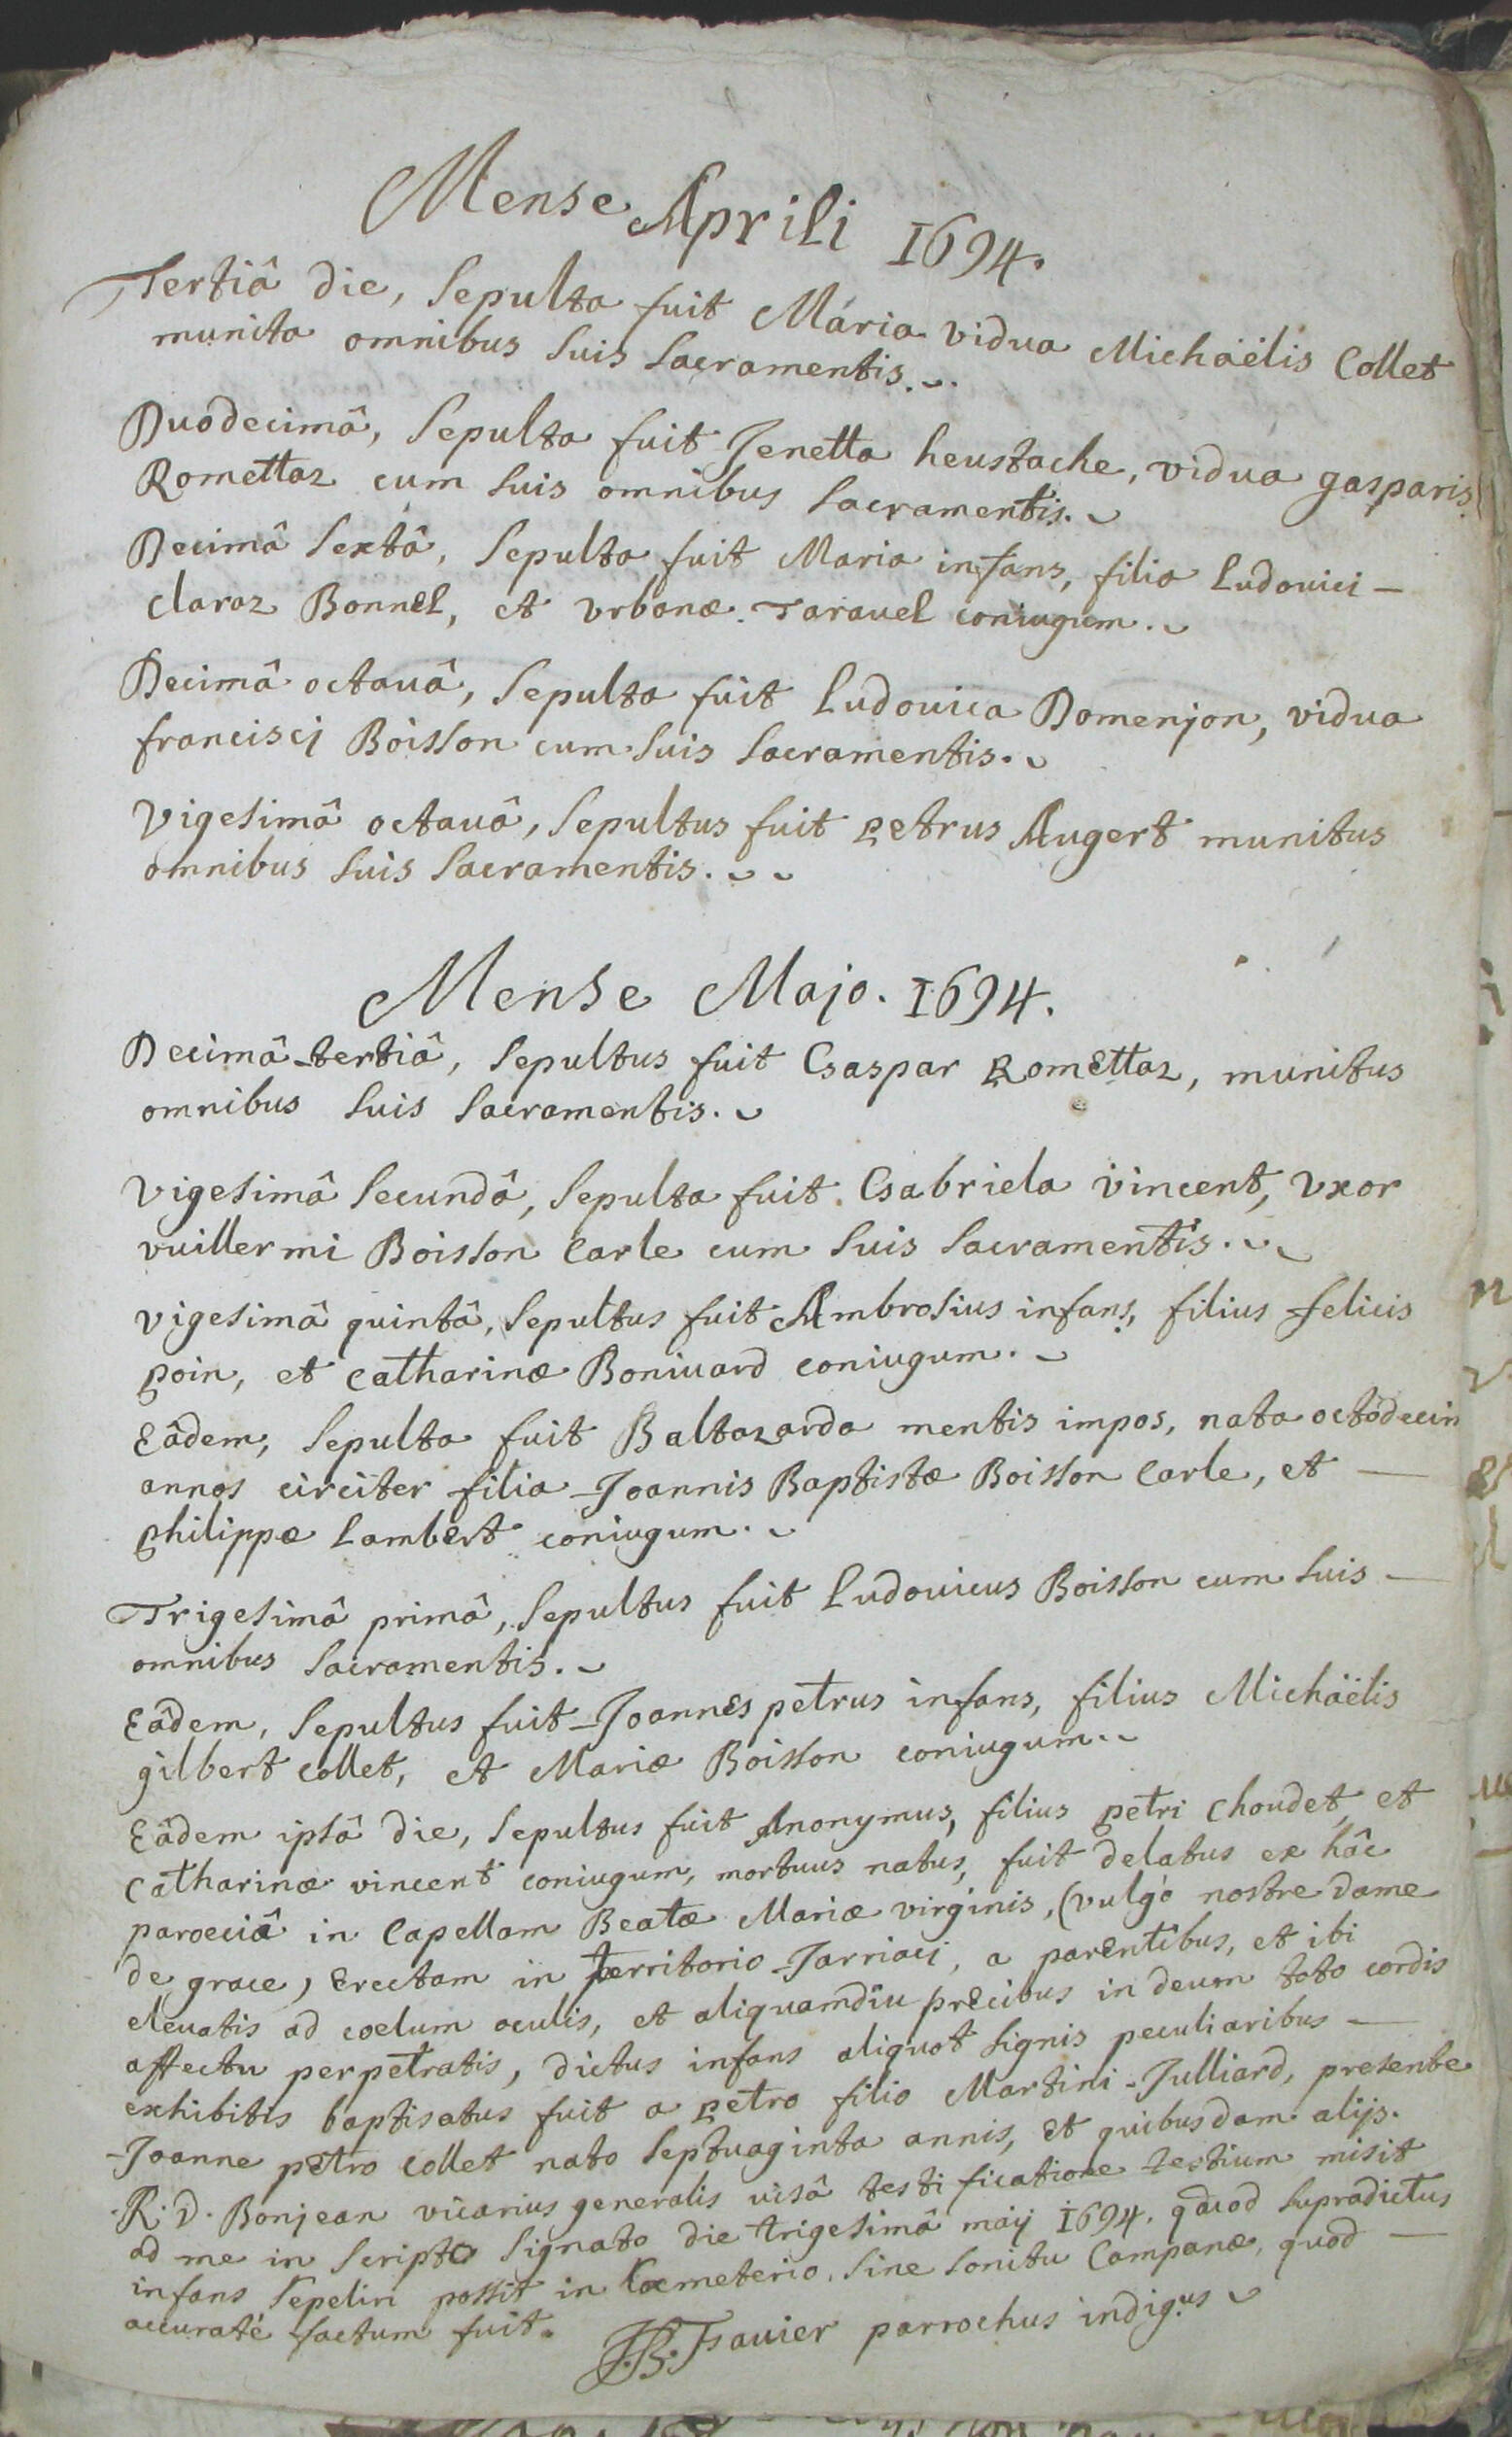 Mense Aprili 1694.
Tertiâ die, Sepulta fuit Maria vidua Michaëlis Collet
munita omnibus suis sacramentis.
Duodecimâ, Sepulta fuit Jenetta heustache, vidua gasparis
Romettaz cum suis omnibus sacramentis.
Decimâ Sextâ, Sepulta fuit Maria infans, filia Ludovici —
claraz Bonnel, et vrbanæ Tarauel coniugum.
Decimâ octauâ, Sepulta fuit Ludouica Domenjon, vidua
francisci Boisson cum suis sacramentis.
Vigesimâ octauâ, Sepultus fuit petrus Augert munitus
omnibus suis sacramentis.
Mense Majo. 1694.
Decimâ-tertiâ, Sepultus fuit Gaspar Romettaz, munitus
omnibus suis sacramentis.
Vigesimâ secundâ, Sepulta fuit Gabriela vincent, vxor
vuillermi Boisson Carle cum suis sacramentis.
vigesimâ quintâ, Sepultus fuit Ambrosius infans, filius felicis
poin, et catharinæ Boniuard coniugum.
Eâdem, Sepulta fuit Baltazarda mentis impos, nata octodecim
annos circiter filia Joannis Baptistæ Boisson Carle, et —
philippæ Lambert coniugum.
Trigesimâ primâ, Sepultus fuit Ludouicus Boisson cum suis —
omnibus sacramentis.
Eâdem, Sepultus fuit Joannes petrus infans, filius Michaëlis
gilbert collet, et Mariæ Boisson coniugum.
Eâdem ipsâ die, Sepultus fuit Anonymus, filius petri choudet, et
catharinæ vincent coniugum, mortuus natus, fuit delatus ex hâc
paroeciâ in Capellam Beatæ Mariæ virginis, (vulgò nostre dame
de grace) Erectam in territorio Jarriaci, a parentibus, et ibi
eleuatis ad coelum oculis, et aliquamdiu precibus in deum toto cordis
affectu perpetratis, dictus infans aliquot signis peculiaribus —
exhibitis baptisatus fuit a petro filio Martini Julliard, presente
Joanne petro collet nato septuaginta annis, et quibusdam alijs.
R. D. Bonjean vicarius generalis visâ testificatione testium misit
ad me in scripto signato die trigesimâ maij 1694. quod supradictus
infans sepeliri possit in Coemeterio sine sonitu Campanæ, quod —
accuraté factum fuit.
parrochus indigus